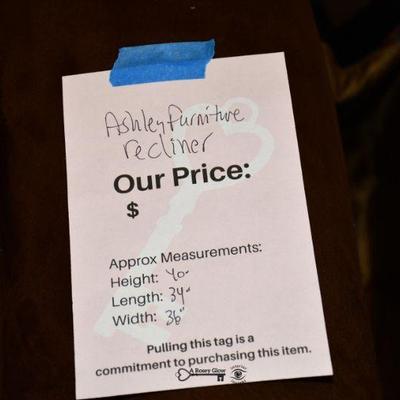 Ashley furniture
recliner
Our Price:
$
Approx Measurements:
Height: 40"
Length: 34"
Width: 36"
Pulling this tag is a
commitment to purchasing this item.
A Rosey Glow